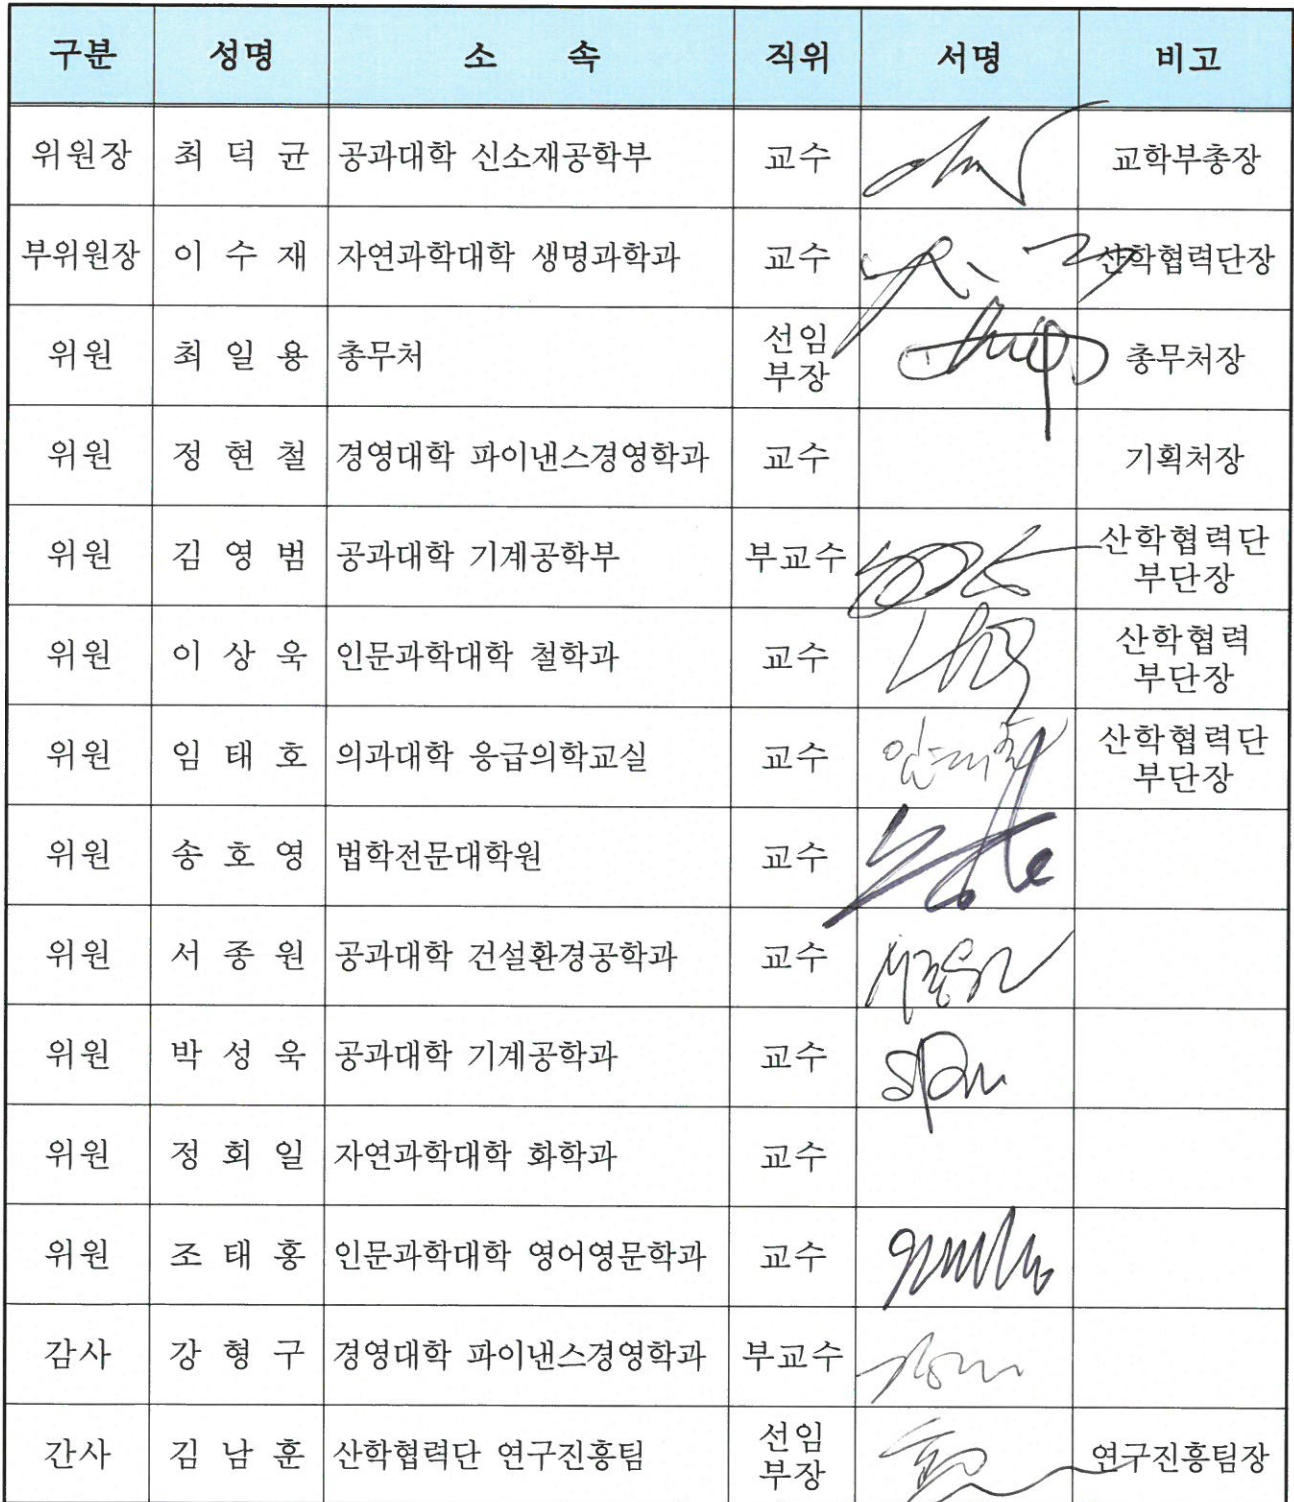 구분 성명 소 속 직위 서명 비고
위원장 최 덕 균 공과대학 신소재공학부 교수 교학부총장
부위원장 이 수 재 자연과학대학 생명과학과 교수 산학협력단장
위원 최 일 용 총무처 선임 부장 총무처장
위원 정 현 철 경영대학 파이낸스경영학과 교수 기획처장
위원 김 영 범 공과대학 기계공학부 부교수 산학협력단 부단장
위원 이 상 욱 인문과학대학 철학과 교수 산학협력 부단장
위원 임 태 호 의과대학 응급의학교실 교수 임태호 산학협력단 부단장
위원 송 호 영 법학전문대학원 교수
위원 서 종 원 공과대학 건설환경공학과 교수 서종원
위원 박 성 욱 공과대학 기계공학과 교수
위원 정 회 일 자연과학대학 화학과 교수
위원 조 태 홍 인문과학대학 영어영문학과 교수
감사 강 형 구 경영대학 파이낸스경영학과 부교수
간사 김 남 훈 산학협력단 연구진흥팀 선임 부장 연구진흥팀장